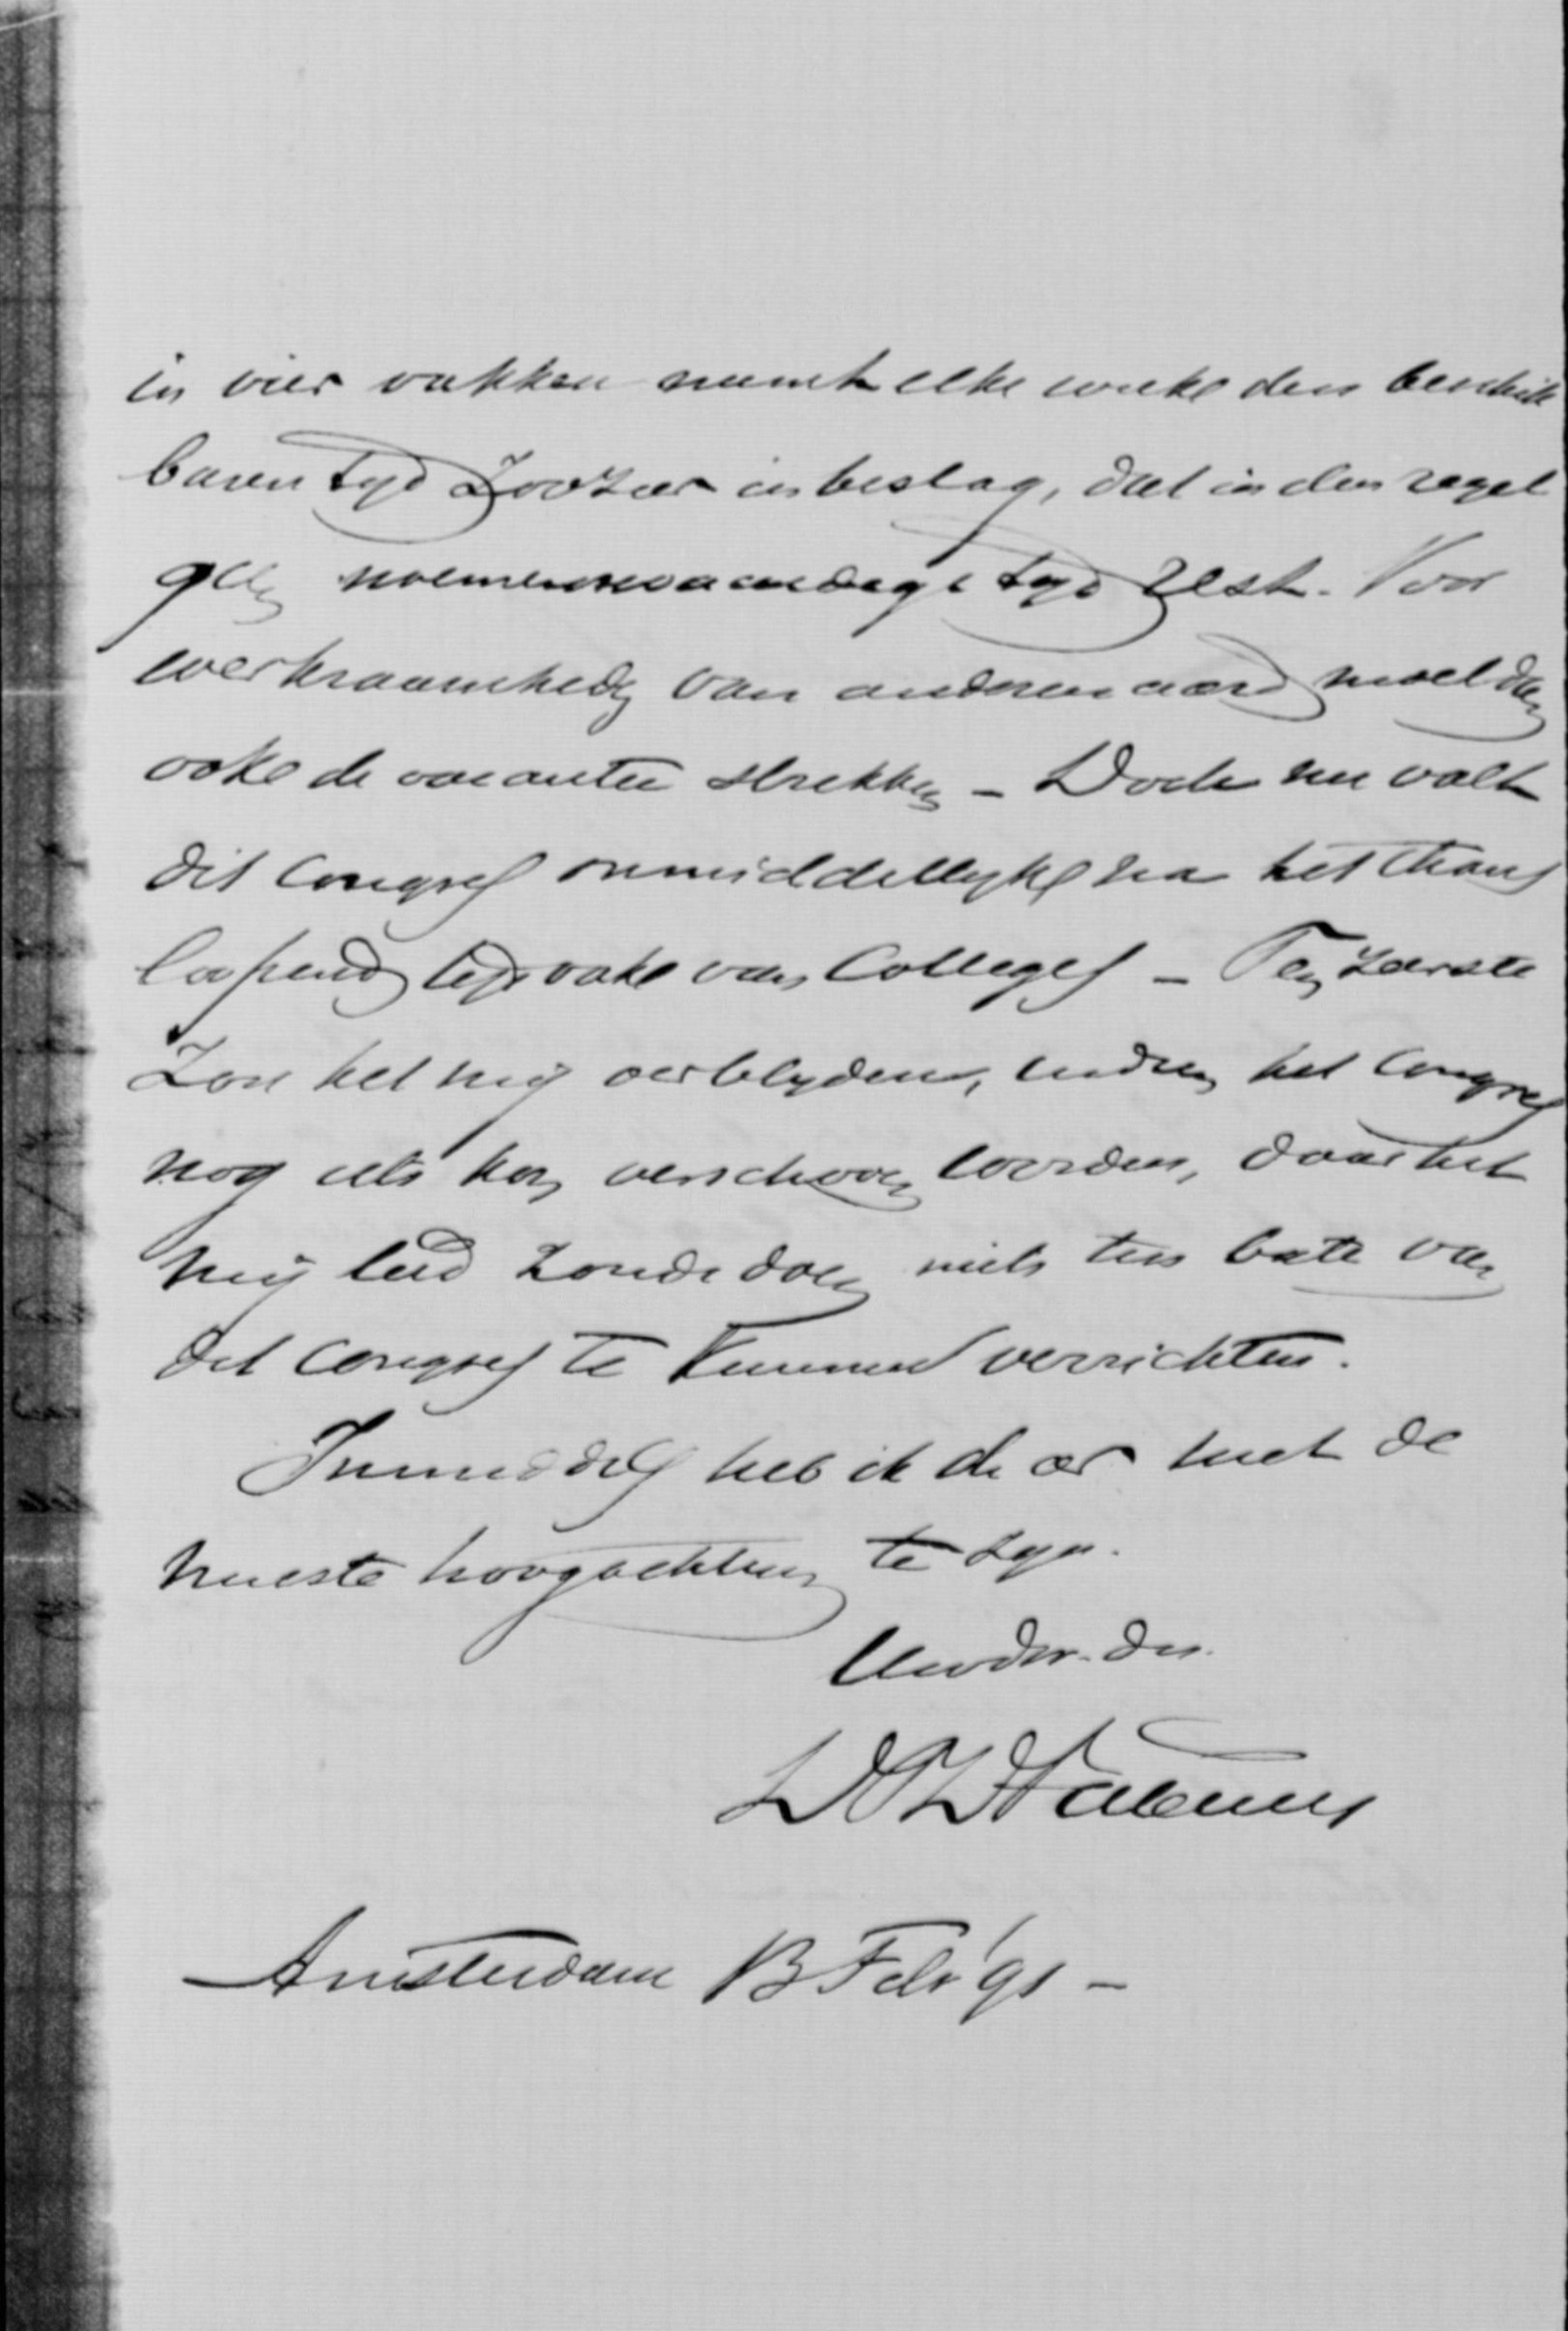 in vier vakken neemt elke week den beschik
baren tyd zoozeer in beslag, dat in den regel
geen noemenswaardige tyd rest. Voor
werkzaamheden van anderen aard moet dan
ook de vacantie strekken – Doch nu valt
dit Congres onmiddellyk na het thans
loopend tydvak van Colleges – Ten zeerste
zou het my verblyden, indien het Congres
nog iets kon verschoven worden, daar het
my leed zoude doen niets ten bate van
dit Congres te kunnen verrichten.
Inmiddels heb ik de eer met de
meeste hoogachting te zyn.
Uw dw. dr.
D P D Fabius
Amsterdam 13 Feb '91 –